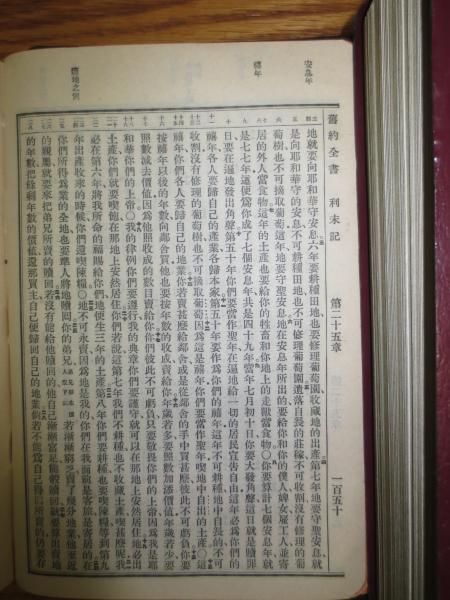 舊約全書 利未記 第二十五章 一百五十
安息年
禧年
贖地之例
地就要向耶和華守安息六年要耕種田地也要修理葡萄園收藏地的出產第七年地要守聖安息就
是向耶和華守的安息不可耕種田地也不可修理葡萄園遺落自長的莊稼不可收割沒有修理的葡
萄樹也不可摘取葡萄這年地要守聖安息地在安息年所出的要給你和你的僕人婢女雇工人並寄
居的外人當食物這年的土產也要給你的牲畜和你地上的走獸當食物○你要算計七個安息年就
是七七年這便為你成了七個安息年共是四十九年當年七月初十日你要大發角聲這日就是贖罪
日要在遍地發出角聲第五十年你們要當作聖年在遍地給一切的居民宣告自由這年必為你們的
禧年各人要歸自己的產業各歸本家第五十年要作為你們的禧年這年不可耕種地中自長的不可
收割沒有修理的葡萄樹也不可摘取葡萄因為這是禧年你們要當作聖年喫地中自出的土產○這
禧年你們各人要歸自己的地業你若賣甚麼給鄰舍或是從鄰舍的手中買甚麼彼此不可虧負你要
按禧年以後的年數向鄰舍買他也要按年數的收成賣給你年歲若多要照數加添價值年歲若少要
照數減去價值因為他照收成的數目賣給你你們彼此不可虧負只要敬畏你們的上帝因為我是耶
和華你們的上帝○我的律例你們要遵行我的典章你們要謹守就可以在那地上安然居住地必出
土產你們就要喫飽在那地上安然居住你們若說這第七年我們不耕種也不收藏土產喫甚麼呢我
必在第六年將我所命的福賜給你們地便生三年的土產第八年你們要耕種也要喫陳糧等到第九
年出產收來的時候你們還喫陳糧○地不可永賣因為地是我的你們在我面前是客旅是寄居的在
你們所得為業的全地也要准人將地贖回你的弟兄若漸漸窮乏賣了幾分地業他至近
的親屬就要來把弟兄所賣的贖回若沒有能給他贖回的他自己漸漸富足能彀贖回就要算出賣地
的年數把餘剩年數的價值還那買主自己便歸回自己的地業倘若不能為自己得回所賣的仍要存